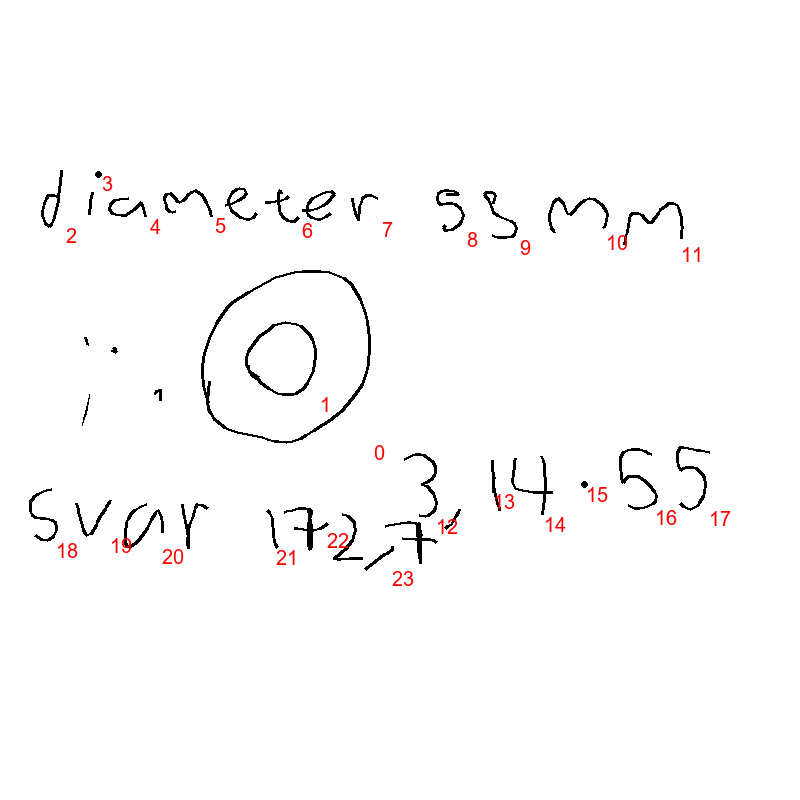 diameter 55 mm
3
2 4 5 6 7 8 9 10 11
1
0
3,14·55
12 13 14 15 16 17
svar 172,7
18 19 20 21 22 23